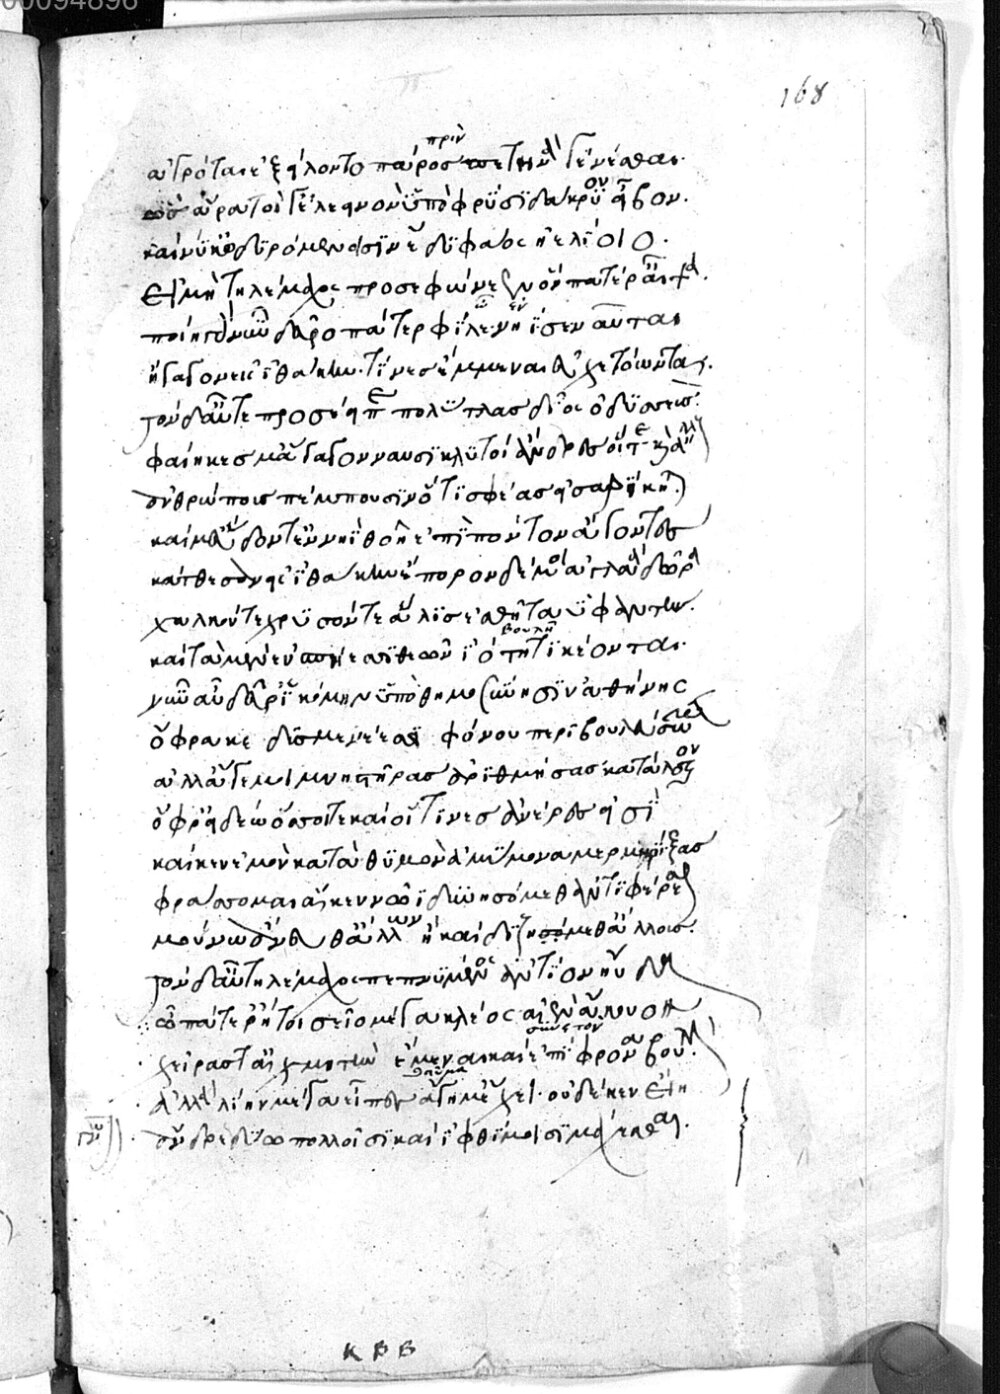 00094896
168
πρὶν
ἀγρόται ἐξείλοντο πάρος πετεηνὰ γενέσθαι.
ὣς ἄρα τοί γ' ἐλεεινὸν ὑπ' ὀφρύσι δάκρυον εἶβον.
καί νύ κ' ὀδυρομένοισιν ἔδυ φάος ἠελίοιο.
εἰ μὴ τηλέμαχος προσεφώνεεν ὃν πατέρ' αἶψα.
ποίῃ γὰρ νῦν δεῦρο πάτερ φίλε νηΐ σε ναῦται
ἤγαγον εἰς ἰθάκην. τίνες ἔμμεναι εὐχετόωντας.
τὸν δ' αὖτε προσέειπε πολύτλας δῖος ὀδυσσεύς.
φαίηκές μ' ἄγαγον ναυσίκλυτοι οἵ τε καὶ ἄλλους
ἀνθρώπους πέμπουσιν ὅτις σφέας εἰσαφίκηται.
καί μ' εὕδοντ' ἐν νηῒ θοῇ ἐπὶ πόντον ἄγοντες
κάτθεσαν εἰς ἰθάκην ἔπορον δέ μοι ἀγλαὰ δῶρα
χαλκόν τε χρυσόν τε ἅλις ἐσθῆτά θ' ὑφαντήν.
βουλῇ
καὶ τὰ μὲν ἐν σπήεσσι θεῶν ἰότητι κέονται.
νῦν αὖ δεῦρ' ἱκόμην ὑποθημοσύνῃσιν ἀθήνης
ὄφρα κε δυσμενέεσσι φόνου πέρι βουλεύσωμεν
ἀλλ' ἄγε μοι μνηστῆρας ἀριθμήσας κατάλεξον
ὄφρ' εἰδέω ὅσσοι τε καὶ οἵ τινες ἀνέρες εἰσί
καί κεν ἐμὸν κατὰ θυμὸν ἀμύμονα μερμηρίξας
φράσσομαι ἤ κεν νῶϊ δυνησόμεθ' ἀντιφέρεσθαι
μούνω ἄνευθ' ἄλλων ἢ καὶ διζησόμεθ' ἄλλους.
τὸν δ' αὖ τηλέμαχος πεπνυμένος ἀντίον ηὔδα
ὦ πάτερ ἤτοι σεῖο μέγα κλέος αἰὲν ἄκουον
συνετὸν
χεῖράς τ' αἰχμητὴν ἔμεναι καὶ ἐπίφρονα βουλήν.
ἀλλὰ λίην μέγα εἶπες ἄγη μ' ἔχει. οὐδέ κεν εἴη
ἄνδρε δύω πολλοῖσι καὶ ἰφθίμοισι μάχεσθαι.